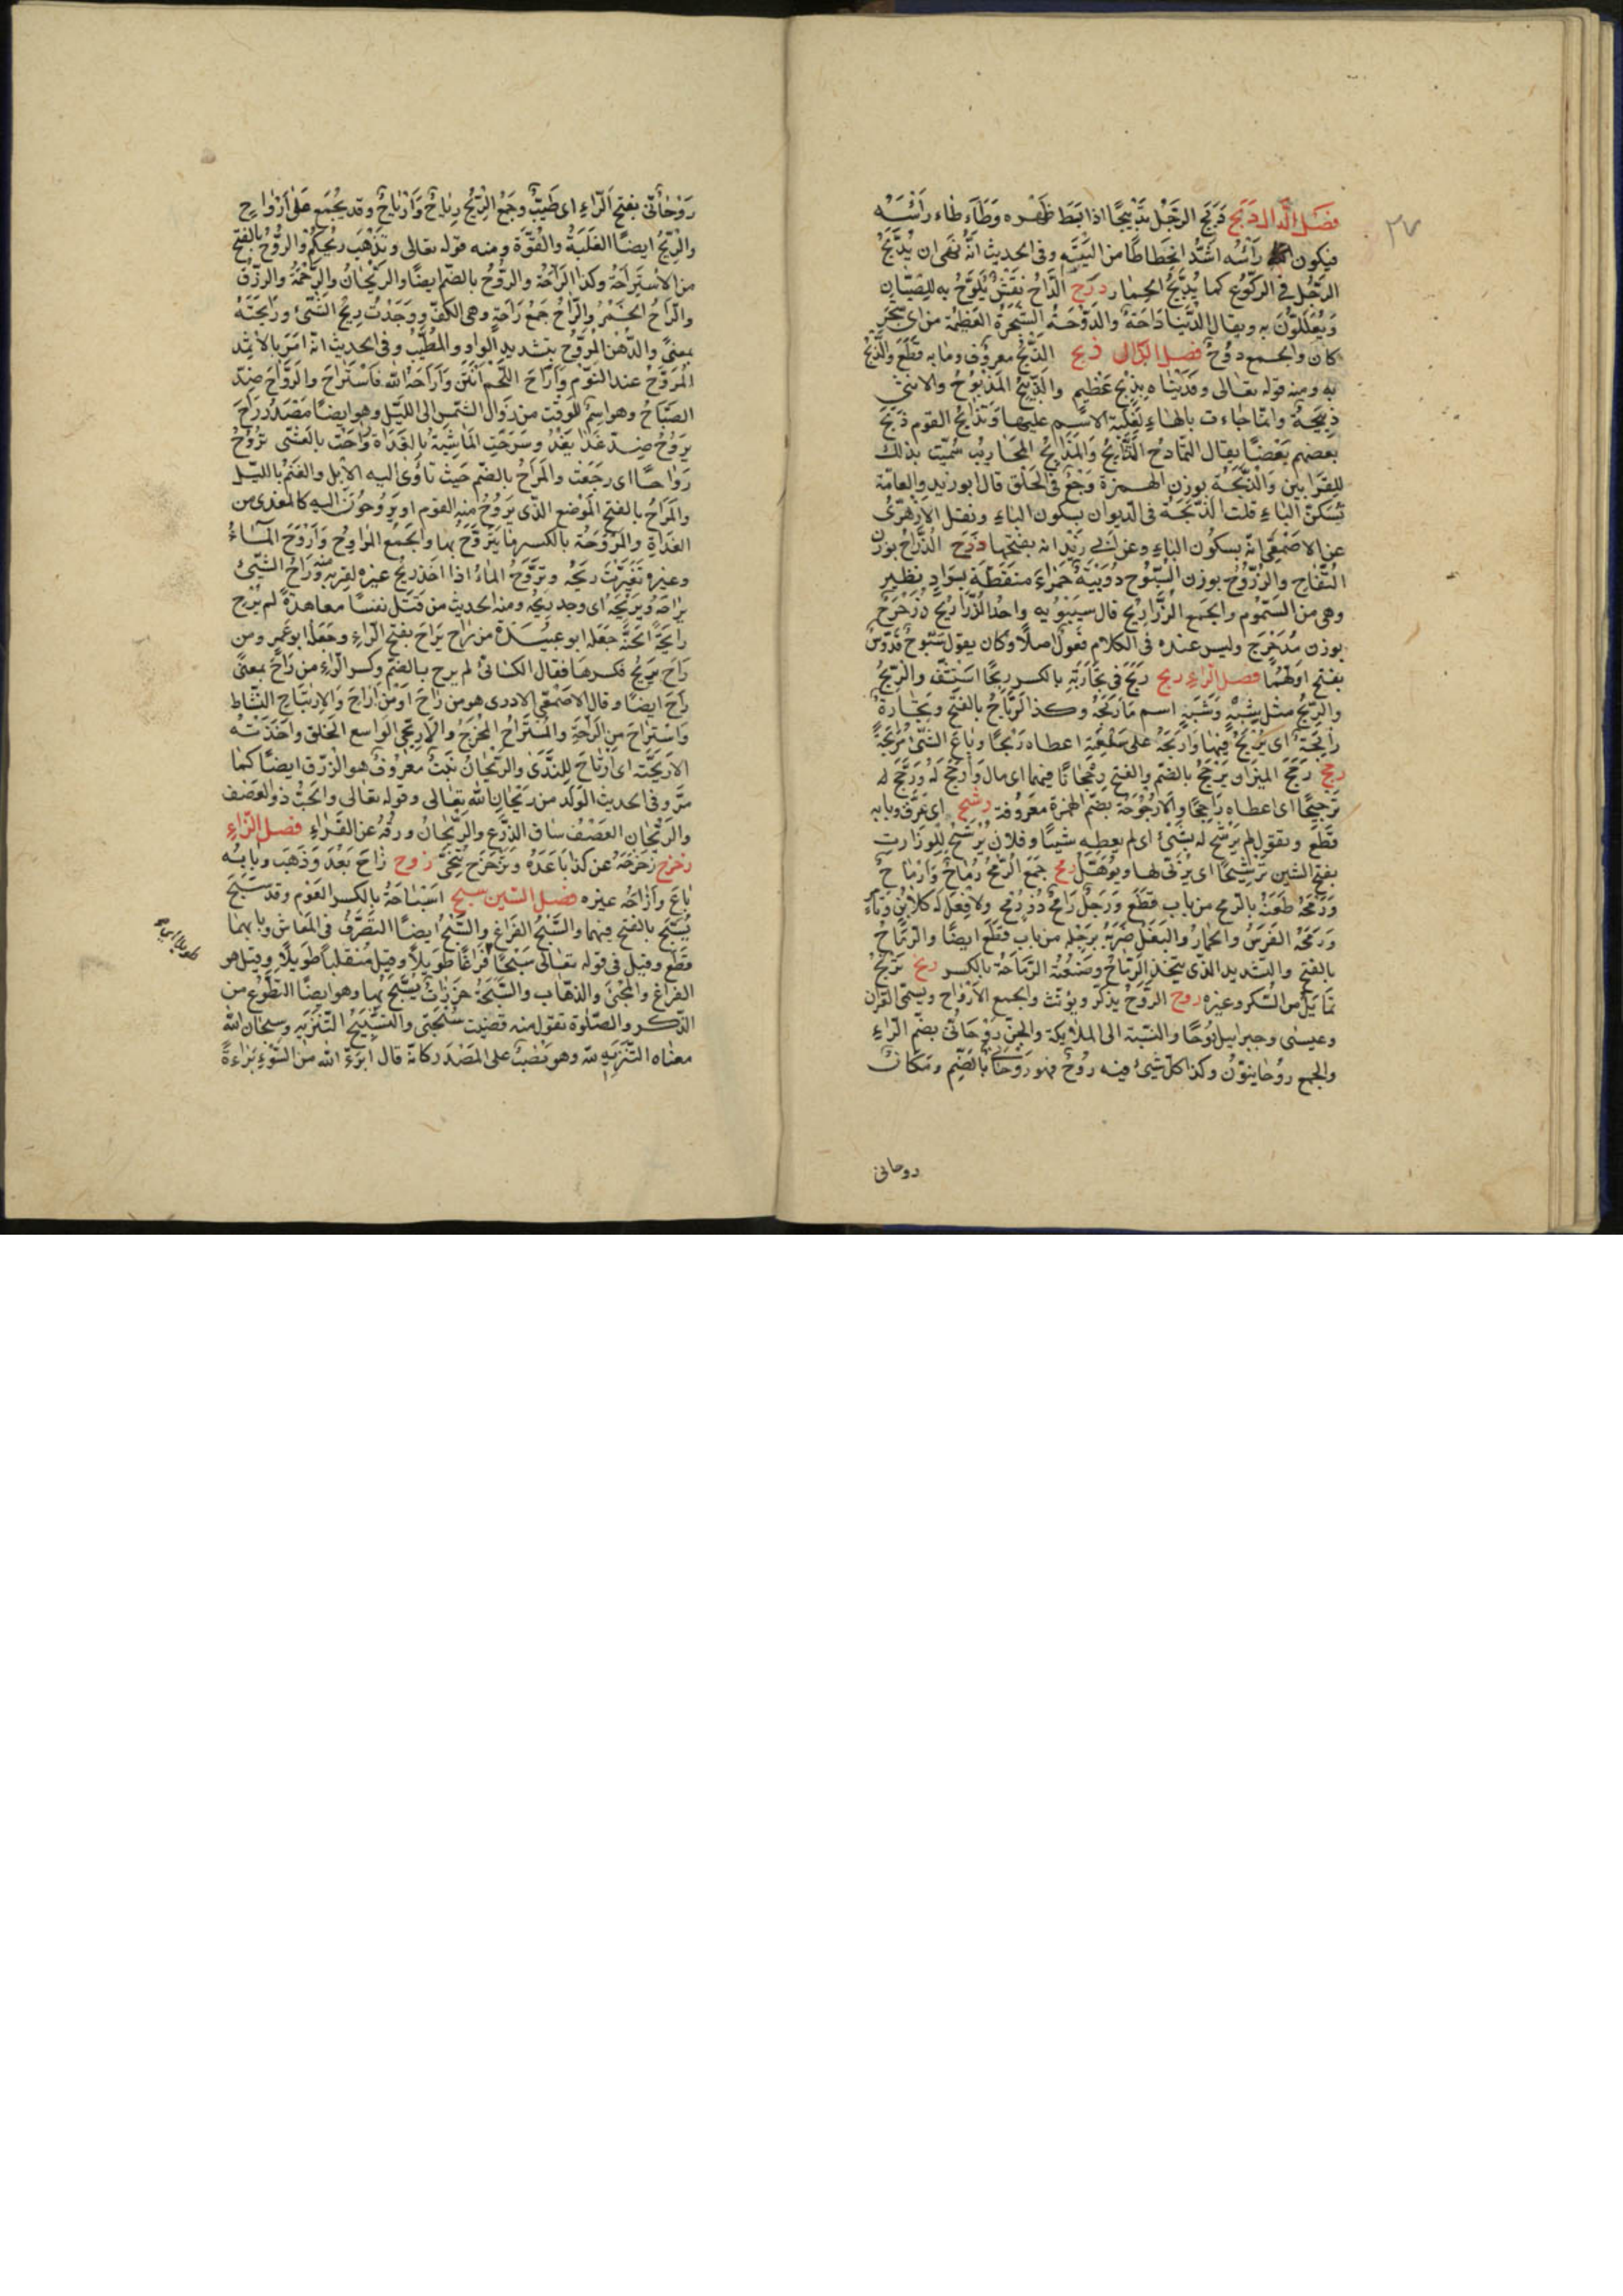 ٢٧
فصل الدال دبح دَبَّحَ الرجُل تَدْبيحًا اذا بَسَط ظَهْره وَطَأطاء رَأْسَهُ
فيكون رَأْسُه اشَدَّ انحطاطًا من اليَتَيْه وفى الحديث انّه نَهَى ان يُدَبِّحَ
الرَّجُل فى الركُوع كما يُدَبِّحُ الحِمار دوح الدَّاحُ نَقْشٌ يُلَوَّحُ به للصِّبْيان
وَيُعَلَّلُونَ به ويقال الدنْيَا دَاحَةٌ والدَّوْحَةُ الشَّجَرَةُ العَظِيمَة من اىّ شَجَرٍ
كان والجمع دَوْحٌ فصل الذال ذبح الذَّبْحُ معروف وبابه قَطَعَ والذِّبْحُ
به ومنه قوله تعالى وفَدَيْنَاه بِذِبْحٍ عَظِيم والذَّبِيحُ المَذْبُوحُ والانثى
ذَبِيحَةٌ وانّما جاءت بالهاء لِغَلَبَةِ الاسْمِ عليها وتَذَابَحَ القوم ذَبَحَ
بعضهم بَعْضًا يقال التّمادُح التَّذَابُحُ وَالمَذَابِحُ المَحَارِيبُ سُمّيَت بذلك
للقَرَابِين وَالذُّبَحَةُ بوزن الهمزة وَجَعٌ فى الحَلْق قال ابو زيد والعامّة
تُسَكِّنُ الباء قلت الذُّبْحَة فى الديوان بسكون الباء ونقل الازهرىُّ
عن الاصْمَعِى انّه بسكُون الباء وعن ابى زَيْد انه بفتحها ذرح الذُّرَّاحُ بوزن
التُّفّاح والذُّرُّوحُ بوزن السُّبُّوح دُوَيْبَةٌ حَمْرَاءُ منَقَّطَة بسَوَادٍ تطير
وهى من السّمُوم والجمع الذَّرَارِيحُ قال سيبَوَيْه واحدُ الذَّرَارِيحِ ذُرَحْرَحٌ
بوزن مُدَحْرَج وليس عنده فى الكلام فُعُّولٌ اصلًا وكان يقول سَبّوحٌ قَدّوسٌ
بفتح اوّلهما فصل الراء ربح رَبِحَ فى تِجَارَتِه بالكسر رِبْحًا اسْتَشَفَّ والرِّبْحُ
والرَّبَحُ مثل شِبْهٍ وَشَبَهٍ اسم مَا رَبِحَهُ وكذا الرَّبَاحُ بالفتح وتِجَارَةٌ
رَابِحَةٌ اى يُرْبَحُ فيها وَارْبَحَهُ على سِلْعَتِه اعطاه رِبْحًا وباعَ الشّىءَ مُرَابَحَةً
رجح رَجَحَ الميزان يَرْجَحُ بالضم والفتح رُجْحَانًا فيهما اى مال وَأَرْجَحَ لَهُ وَرَجَّحَ له
تَرْجِيحًا اى اعطاه رَاجِحًا والارْجُوحَة بضمّ الهمزة معروفة رشح اى عَرِقَ وبابه
قَطَعَ وتقول لم يَرْشَح له بشىءٍ اى لم يعطه شيئًا وفلانٌ يُرَشَّحُ للوزارت
بفتح الشين تَرْشِيحًا اى يُرَبَّى لها ويُؤَهَّلُ رمح جَمْعُ الرُّمْحُ رِمَاحٌ وَأَرْمَاحٌ
وَرَمَحَهُ طَعَنَهُ بالرّمح من باب قَطَعَ وَرَجُلٌ رَامِحٌ ذُو رُمْحٍ ولا فِعْلَ له كَلَابِنٍ وتَامِرٍ
وَرَمَحَهُ الفَرَسُ والحِمَارُ والبَغْلُ ضَرَبَهُ برَجْلِه من باب قَطَعَ ايضًا والرَّمَّاحُ
بالفتح والتشديد الذى يتخذ الرماحَ وصَنْعَتُه الرِّمَاحَةُ بالكسر رنح تَرَنَّحَ
تَمَايَلَ من السُّكر وغيره روح الرُّوحُ يذَكّر ويؤنّث والجمع الارْوَاح ويسمّى القران
وعيسى وجبرايل رُوحًا والنسْبة الى الملايكة والجنّ رُوْحَانىّ بضم الراء
والجمع روُحانيّون وكذا كلّ شىء فيه رُوحٌ فهو رُوحَانىٌّ بالضم ومَكَانٌ
روحانى
رَوْحَانىّ بفتح الرّاء اى طَيّبٌ وجَمْعُ الرّيحُ رِيَاحٌ وَأَرْيَاحٌ وقد يُجْمَع عَلى أَرْوَاحٍ
والرِّيحُ ايضًا الغَلَبَةُ والقُوَّة ومنه قوله تعالى وتَذْهَبَ رِيحُكُمْ والرَّوْحُ بالفتح
من الاسْتِرَاحَةُ وكذا الرَّاحَةُ والرَّوْحُ بالضم ايضًا والريْحَانُ والرَّحْمَةُ والرزْقُ
والرَّاحُ الخَمْرُ والرَّاحُ جَمْعُ رَاحَةٍ وهى الكفّ ووَجَدْتُ رِيحَ الشّىءِ ورَايِحَتَهُ
بمعنًى والدُّهْنُ المُرَوَّحُ بتشديد الواو المُطَيَّبُ وفى الحديث انّه امَرَ بالاثمد
المُرَوَّحُ عند النوْمِ وَأَرَاحَ اللحْمُ أَنْتَنَ وَأَرَاحَهُ الله فاسْتَرَاحَ والرَّوَاحُ ضِدُّ
الصَّبَاحُ وهو اسْمٌ للوَقْتِ من زَوَال الشمْس الى الليْل وهو ايضًا مَصْدَرُ رَاحَ
يَرُوحُ ضِدّ غَدَا يَغْدُ وسَرَحَتِ المَاشِيَةُ بالغَدَاة ورَاحَتْ بالعَشّى تَرُوحُ
رَوَاحًا اى رَجَعَتْ والمُرَاحُ بالضم حَيْث تأوى اليه الابل والغَنَمُ بالليْل
والمَرَاحُ بالفتح المَوْضع الذى يَرُوحُ منه القوم او يَرُوحُونَ اليه كالمغدى من
الغَدَاةِ والمَرْوَحَة بالكسر ما يَتَرَوَّحُ بها والجَمْع المراوحُ وَأَرْوَحَ المَاءُ
وغيره تَغَيَّرَتْ رِيحُه وتَروَّحَ المَاءُ اذا اخذ رِيحُ غيره لقربه منه وَرَاحَ الشّىءَ
يَرَاحُهُ وَيَرِيحُهُ اى وجد رِيحُه ومنه الحديث من قَتَل نفسًا معاهدةً لم يُرِح
رايحَةَ الجَنَّة جَعَلَه ابو عبيْدَة من راحَ يَرَاحُ بفتح الرّاء وجَعَلَه ابو عَمرٍو من
رَاحَ يَرِيحُ فكسرهَا فقال الكسائى لم يرح بالضم وكسر الرّاء من رَاحَ بمعنَى
رَاحَ ايضًا وقال الاصْمَعّى لا درى هو من رَاحَ اوْ مِنْ أَرَاحَ وَالارتيَاحِ النّشاط
وَاسْتراحَ من الرّاحَةِ والمُسْتَرَاحُ المُخْرَجُ والارْيَحِىّ الواسع الخلق وأَخَذَتْه
الاريَحيّة اى ارْتَاحَ لِلنَّدَى والرَّيْحَانُ نَبْتٌ معْرُوفٌ هو الرّزق ايضًا كما
مرَّ وفى الحديث الوَلَد من رَيْحَانِ الله تعالى وقوله تعالى والحَبُّ ذو العَصْف
والرَّيْحَان العَصْفُ ساق الزَّرْع والرَّيْحَانُ ورقُهُ عن الفرّاءِ فصل الزاى
زحزح زَحْزَحَهُ عن كذا بَاعَدَهُ وتَزَحْزَح تَنَحَّى زوح زَاحَ بَعُدَ وَذَهَبَ وبابه
بَاعَ وَأَزَاحَهُ غيره فصل السّين سبح السِّبَاحَةُ بالكسر العَوْم وقد سَبَحَ
يَسْبَحُ بالفتح فيهما والسَّبْحُ الفَرَاغُ والسَّبْحُ ايضًا التصَرُّفُ فى المَعَاش وبابهما
قَطَعَ وقيل فى قوله تعالى سَبْحًا طَوِيلاً فَرَاغًا طَويلاً وقيل مُتَقَلّبًا طَوِيلًا وقيل هو
الفراغ والمَجْىء والذهَاب والسُّبْحَةُ خَرَزَاتٌ يُسَبَّحُ بها وهو ايضًا التطَوُّع من
الذكر والصّلوة تقول منه قضيت سُبْحَتى والتسْبيحُ التّنزيه وسبحان الله
معناه التّنزيه لله وهو نَصْبٌ على المَصْدَر كانّه قال ابرِئُ الله من السُّوْءِ بَرَاءةً